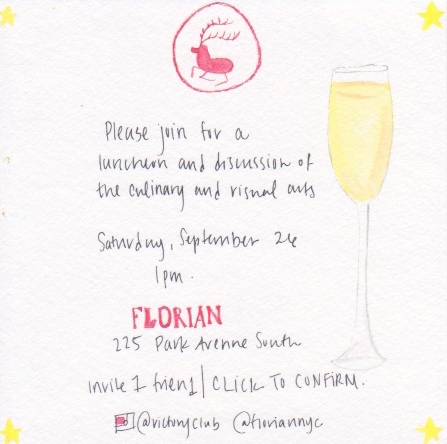 Please join for a
luncheon and discussion of
the culinary and visual arts
Saturday, September 26
1pm.
FLORIAN
225 Park Avenue South
invite 1 friend | CLICK TO CONFIRM.
@victoryclub @floriannyc